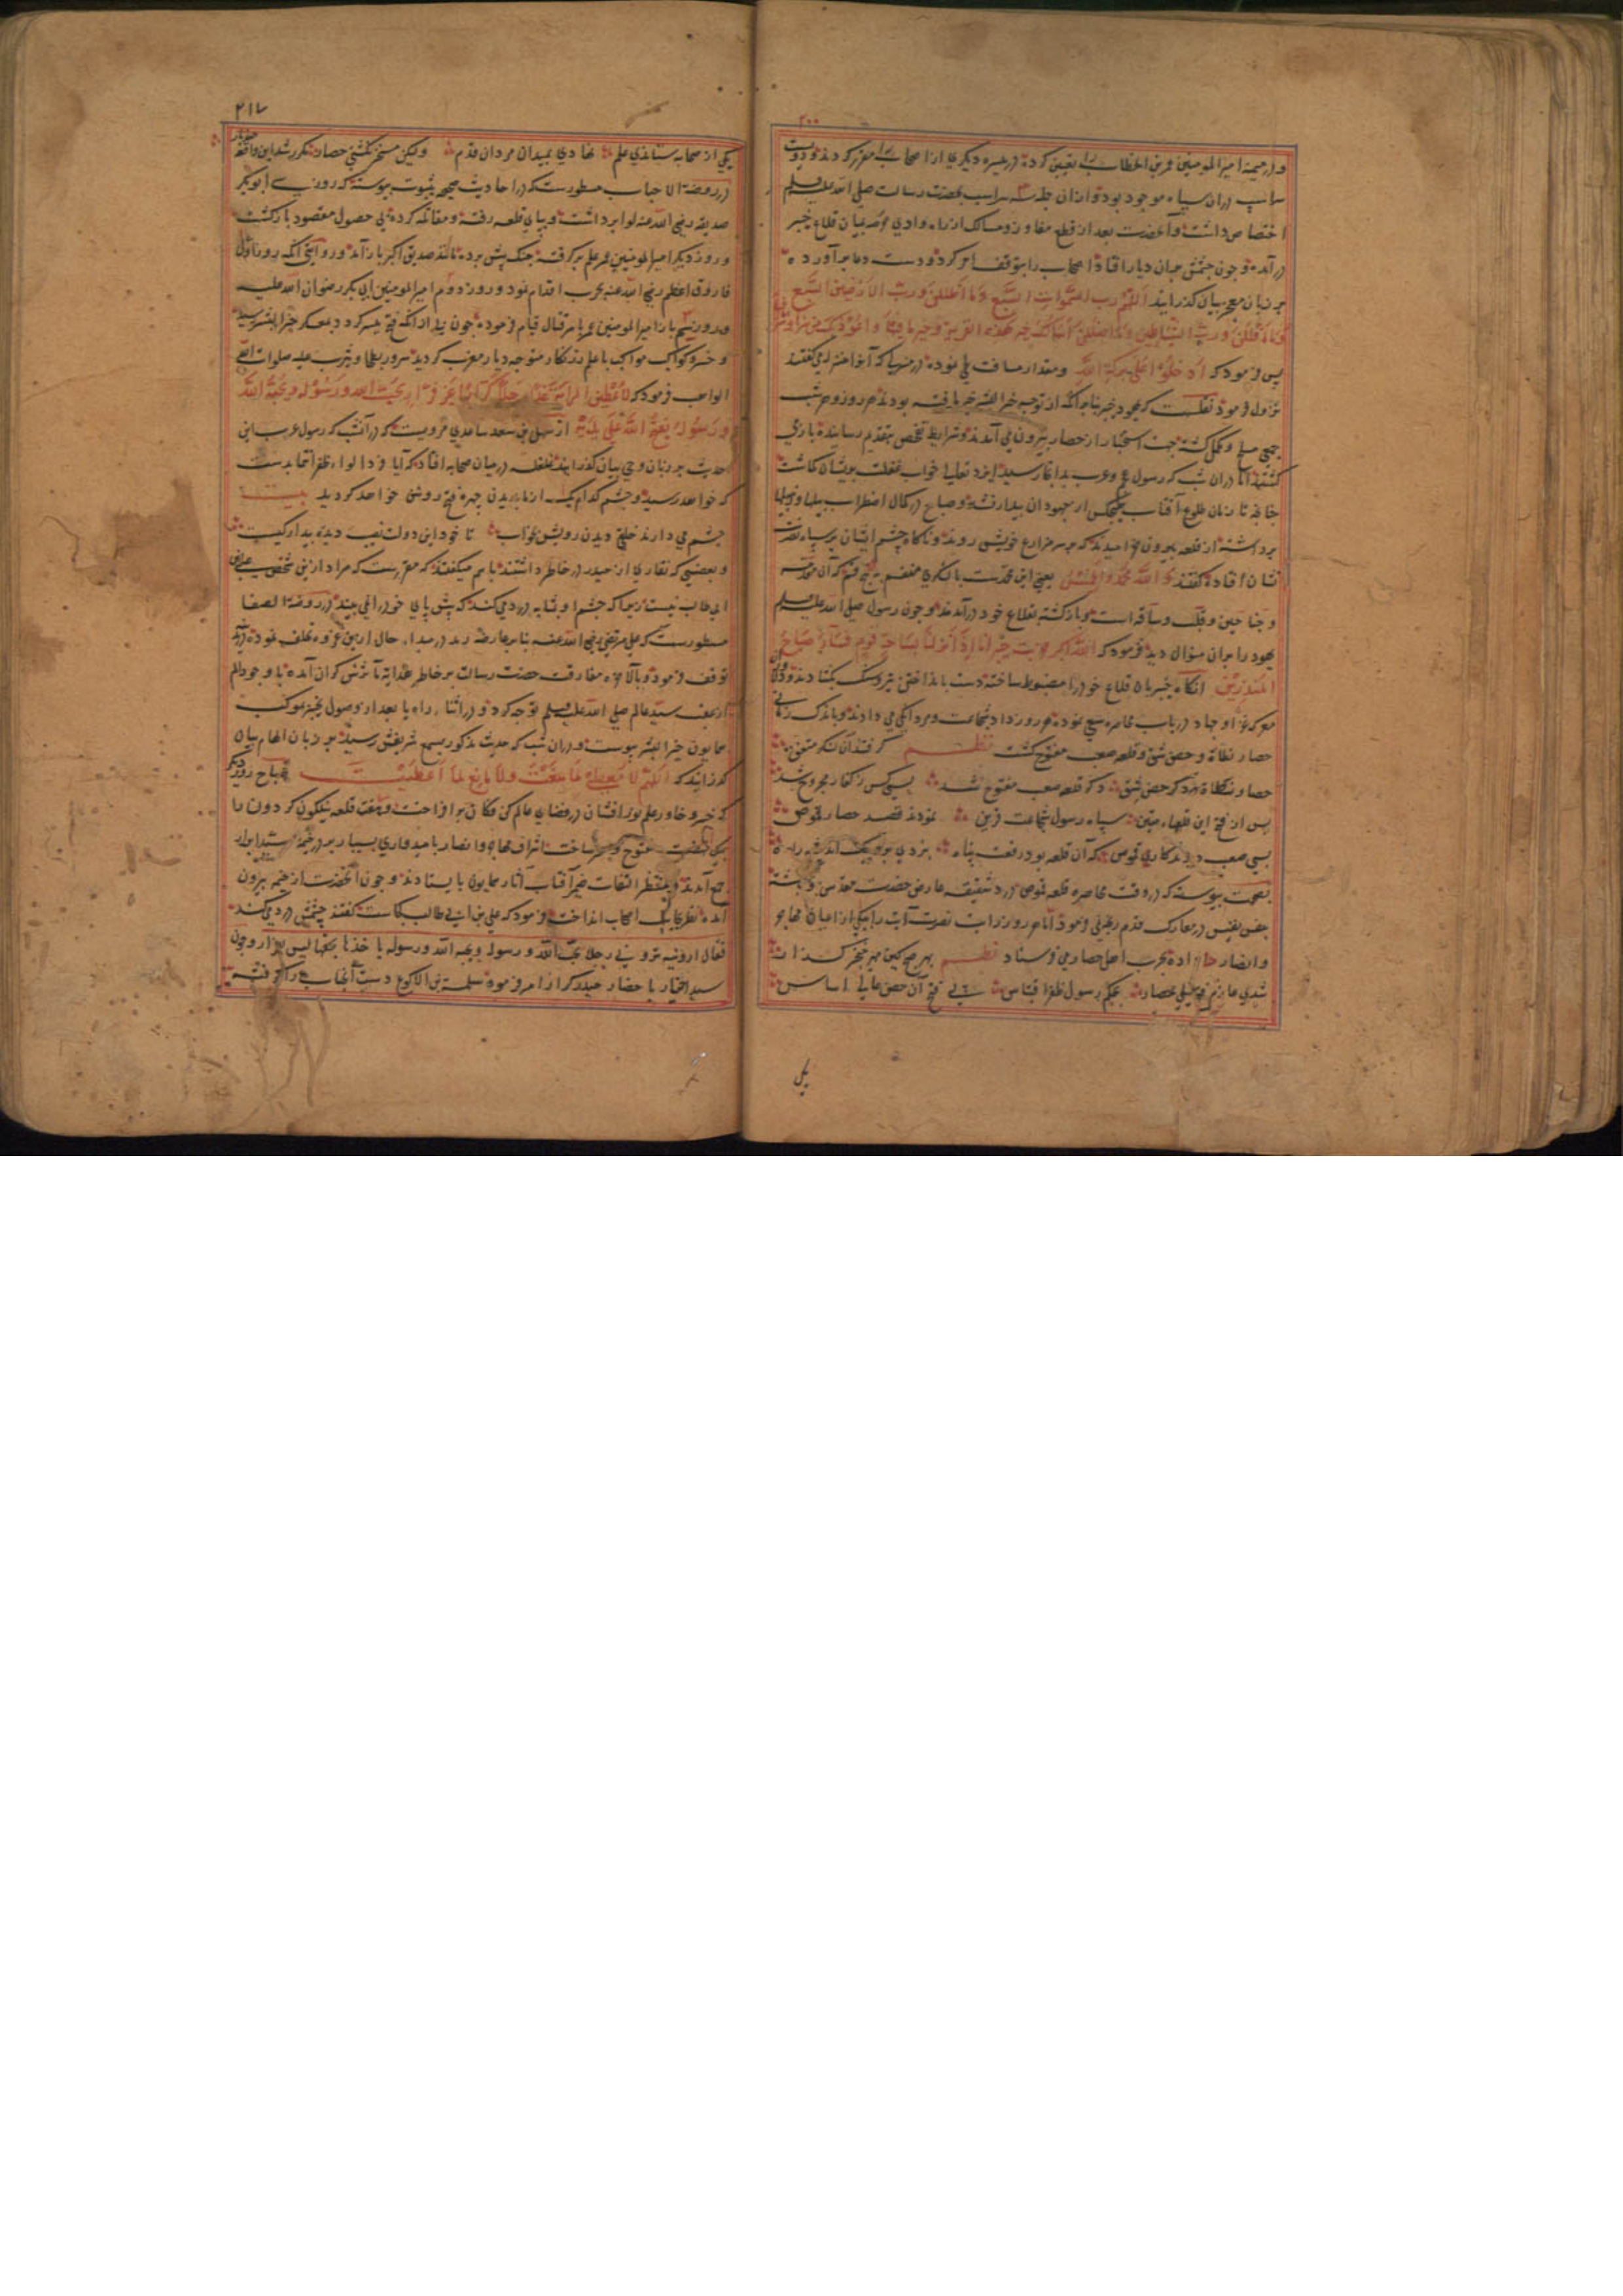 و در میمنه امیرالمومنین عمر بن الخطاب را تعیین کرده در میسره دیگری از اصحاب را مقرر کردند و دویست
اسپ در ان سپاه موجود بود و از ان جمله سه اسپ بحضرت رسالت صلی الله علیه وسلم
اختصاص داشت و آنحضرت بعد از قطع مفاوز و مسالک از راه وادی بمیان قلاع خیبر
در آمده و چون چشمش بران دیار افتاد اصحاب را بتوقف امر کرد و دست دعا برآورده
بر زبان معجز بیان گذرانید اللهم رب السموات السبع وما اظللن ورب الارضین السبع
وما اقللن ورب الشیاطین وما اضللن اسالک خیر هذه القریة وخیر ما فیها واعوذ بک من شرها وشر
پس فرمود که ادخلوا علی برکة الله ومقدار مسافت طی نموده در منزلی که آنرا منزله میگفتند
نزول فرمود نقلست که یهود خیبر بنابر آنکه از توجه خیر البشر خبر یافته بودند هر روز و هر شب
جمعی مسلح و مکمل گشته جهت استخبار از حصار بیرون می آمدند و شرایط تفحص بتقدیم رسانیده باز می
گشتند اما در ان شب که رسول عجم و عرب بدانجا رسید ایزد تعالی خواب غفلت بریشان گماشت
چنانچه تا زمان طلوع آفتاب هیچکس از یهودان بیدار نشد و صباح در کمال اضطراب بیلها و زنبیلها
برداشته از قلعه بیرون خرامیدند که بر سر مزارع خویش روند و ناگاه چشم ایشان بر سپاه نصرت
نشان افتاده گفتند والله محمد والخمیس یعنی این محمدست با لشکری منقسم به پنج قسم که آن مقدمه
و جناحین و قلب و ساقه است و بازگشته بقلاع خود در آمدند و چون رسول صلی الله علیه وسلم
یهود را بران منوال دید فرمود که الله اکبر خربت خیبر انا اذا نزلنا بساحة قوم فساء صباح
المنذرین انگاه خیبریان قلاع خود را مضبوط ساخته دست بانداختن تیر و سنگ بگشادند و دلاوران
معرکه غزا و جهاد در باب محاصره سعی نموده هر روز داد شجاعت و مردانگی می دادند و باندک زمانی
حصار نطاة و حصن شق و قلعه صعب مفتوح گشت نظم گرفتند آن لشکر متفق
حصار نطاة دگر حصن شق دگر قلعه صعب مفتوح شد بسی کس ز کفار مجروح شد
پس از فتح این قلعهاء متین سپاه رسول شجاعت قرین نمودند قصد حصار قموص
بسی صعب دیدند کار قموص که آن قلعه بود رفعت پناه نزدی بر اوپیک اندیشه راه
بصحت پیوسته که در وقت محاصره قلعه قموص درد شقیقه عارض حضرت مقدس نبوی گشته
بنفس نفیس در معارک قدم رنجه نمی فرمود اما هر روز رایت نصرت آیت را بیکی از اعیان مهاجر
و انصار داده بحرب اهل حصار می فرستاد نظم بهر صبح کین مهر خنجر گذار
شدی عازم فتح نیلی حصار بحکم رسول ظفر اقتباس پی فتح آن حصن عالی اساس
یکی
۲۱۷
یکی از صحابه ستاندی علم نهادی بمیدان مردان قدم ولیکن مسخر نگشتی حصار مکرر شد این واقعه چند بار
در روضة الاحباب مسطورست که در احادیث صحیحه بثبوت پیوسته که روزی ابوبکر
صدیق رضی الله عنه لوا برداشت و بپای قلعه رفته و مقاتله کرده بی حصول مقصود بازگشت
و روز دیگر امیرالمومنین عمر علم برگرفته جنگ پیش برده مانند صدیق اکبر باز آمد و روایتی آنکه روز اول
فاروق اعظم رضی الله عنه بحرب اقدام نمود و روز دوم امیرالمومنین ابی بکر رضوان الله علیه
و روز سیم باز امیرالمومنین عمر بامر قتال قیام فرموده چون بی از آنکه فتح میسر گردد بمعسکر خیر البشر رسید
و خسرو کواکب مواکب با علم زرنگار متوجه دیار مغرب گردید سرور بطحا و یثرب علیه صلوات الله
الواهب فرمود که لاعطین الرایة غدا رجلا کرارا غیر فرار یحب الله ورسوله ویحبه الله
ورسوله یفتح الله علی یدیه از سهل بن سعد ساعدی مرویست که در آنشب که رسول عرب این
حدیث بر زبان وحی بیان گذرانید غلغله در میان صحابه افتاد که آیا فردا لواء ظفر انتما بدست
که خواهد رسید و چشم کدام یک از ما بدیدن چهره فتح روشن خواهد گردید بیت
چشم می دارند خلقی دیدن رویش بخواب تا خود این دولت نصیب دیده بیدار کیست
و بعضی که نقاری از حیدر در خاطر داشتند با هم میگفتند که مقررست که مراد از این شخص علی بن
ابی طالب نیست زیرا که چشم او بمثابه درد میکند که پیش پای خود را نمی بیند در روضة الصفا
مسطورست که علی مرتضی رضی الله عنه بنا بر عارضه رمد در مبداء حال از ین غزوه تخلف نموده در مدینه
توقف فرمود و بالآخره مفارقت حضرت رسالت بر خاطر عاطرش گران آمده با وجود الم
از عقب سید عالم صلی الله علیه وسلم توجه کرد و در اثناء راه یا بعد از وصول بخیبر بموکب
همایون خیر البشر پیوست و در ان شب که حدیث مذکور بسمع شریفش رسید بر زبان الهام بیان
گذرانید که اللهم لا معطی لما منعت ولا مانع لما اعطیت صباح روز دیگر
که خسرو خاور علم نور افشان در فضای عالم کن فکان بر افراخت و هفت قلعه نیلگون گردون را
مفتوح و مسخر ساخت اشراف مهاجر و انصار بامیدواری بسیار بر در خیمه سید ابرار
جمع آمدند و منتظر التفات ضمیر آفتاب آثار همایون بایستادند و چون آنحضرت از خیمه بیرون
آمده نظر بجانب اصحاب انداخت و فرمود که علی بن ابی طالب کجاست گفتند چشمش درد میکند
فقال ارونیه تروننی رجلا یحب الله ورسوله ویحبه الله ورسوله یاخذها بحقها پس
سید اخیار باحضار حیدر کرار امر فرموده سلمة بن الاکوع دست آنجناب را گرفته